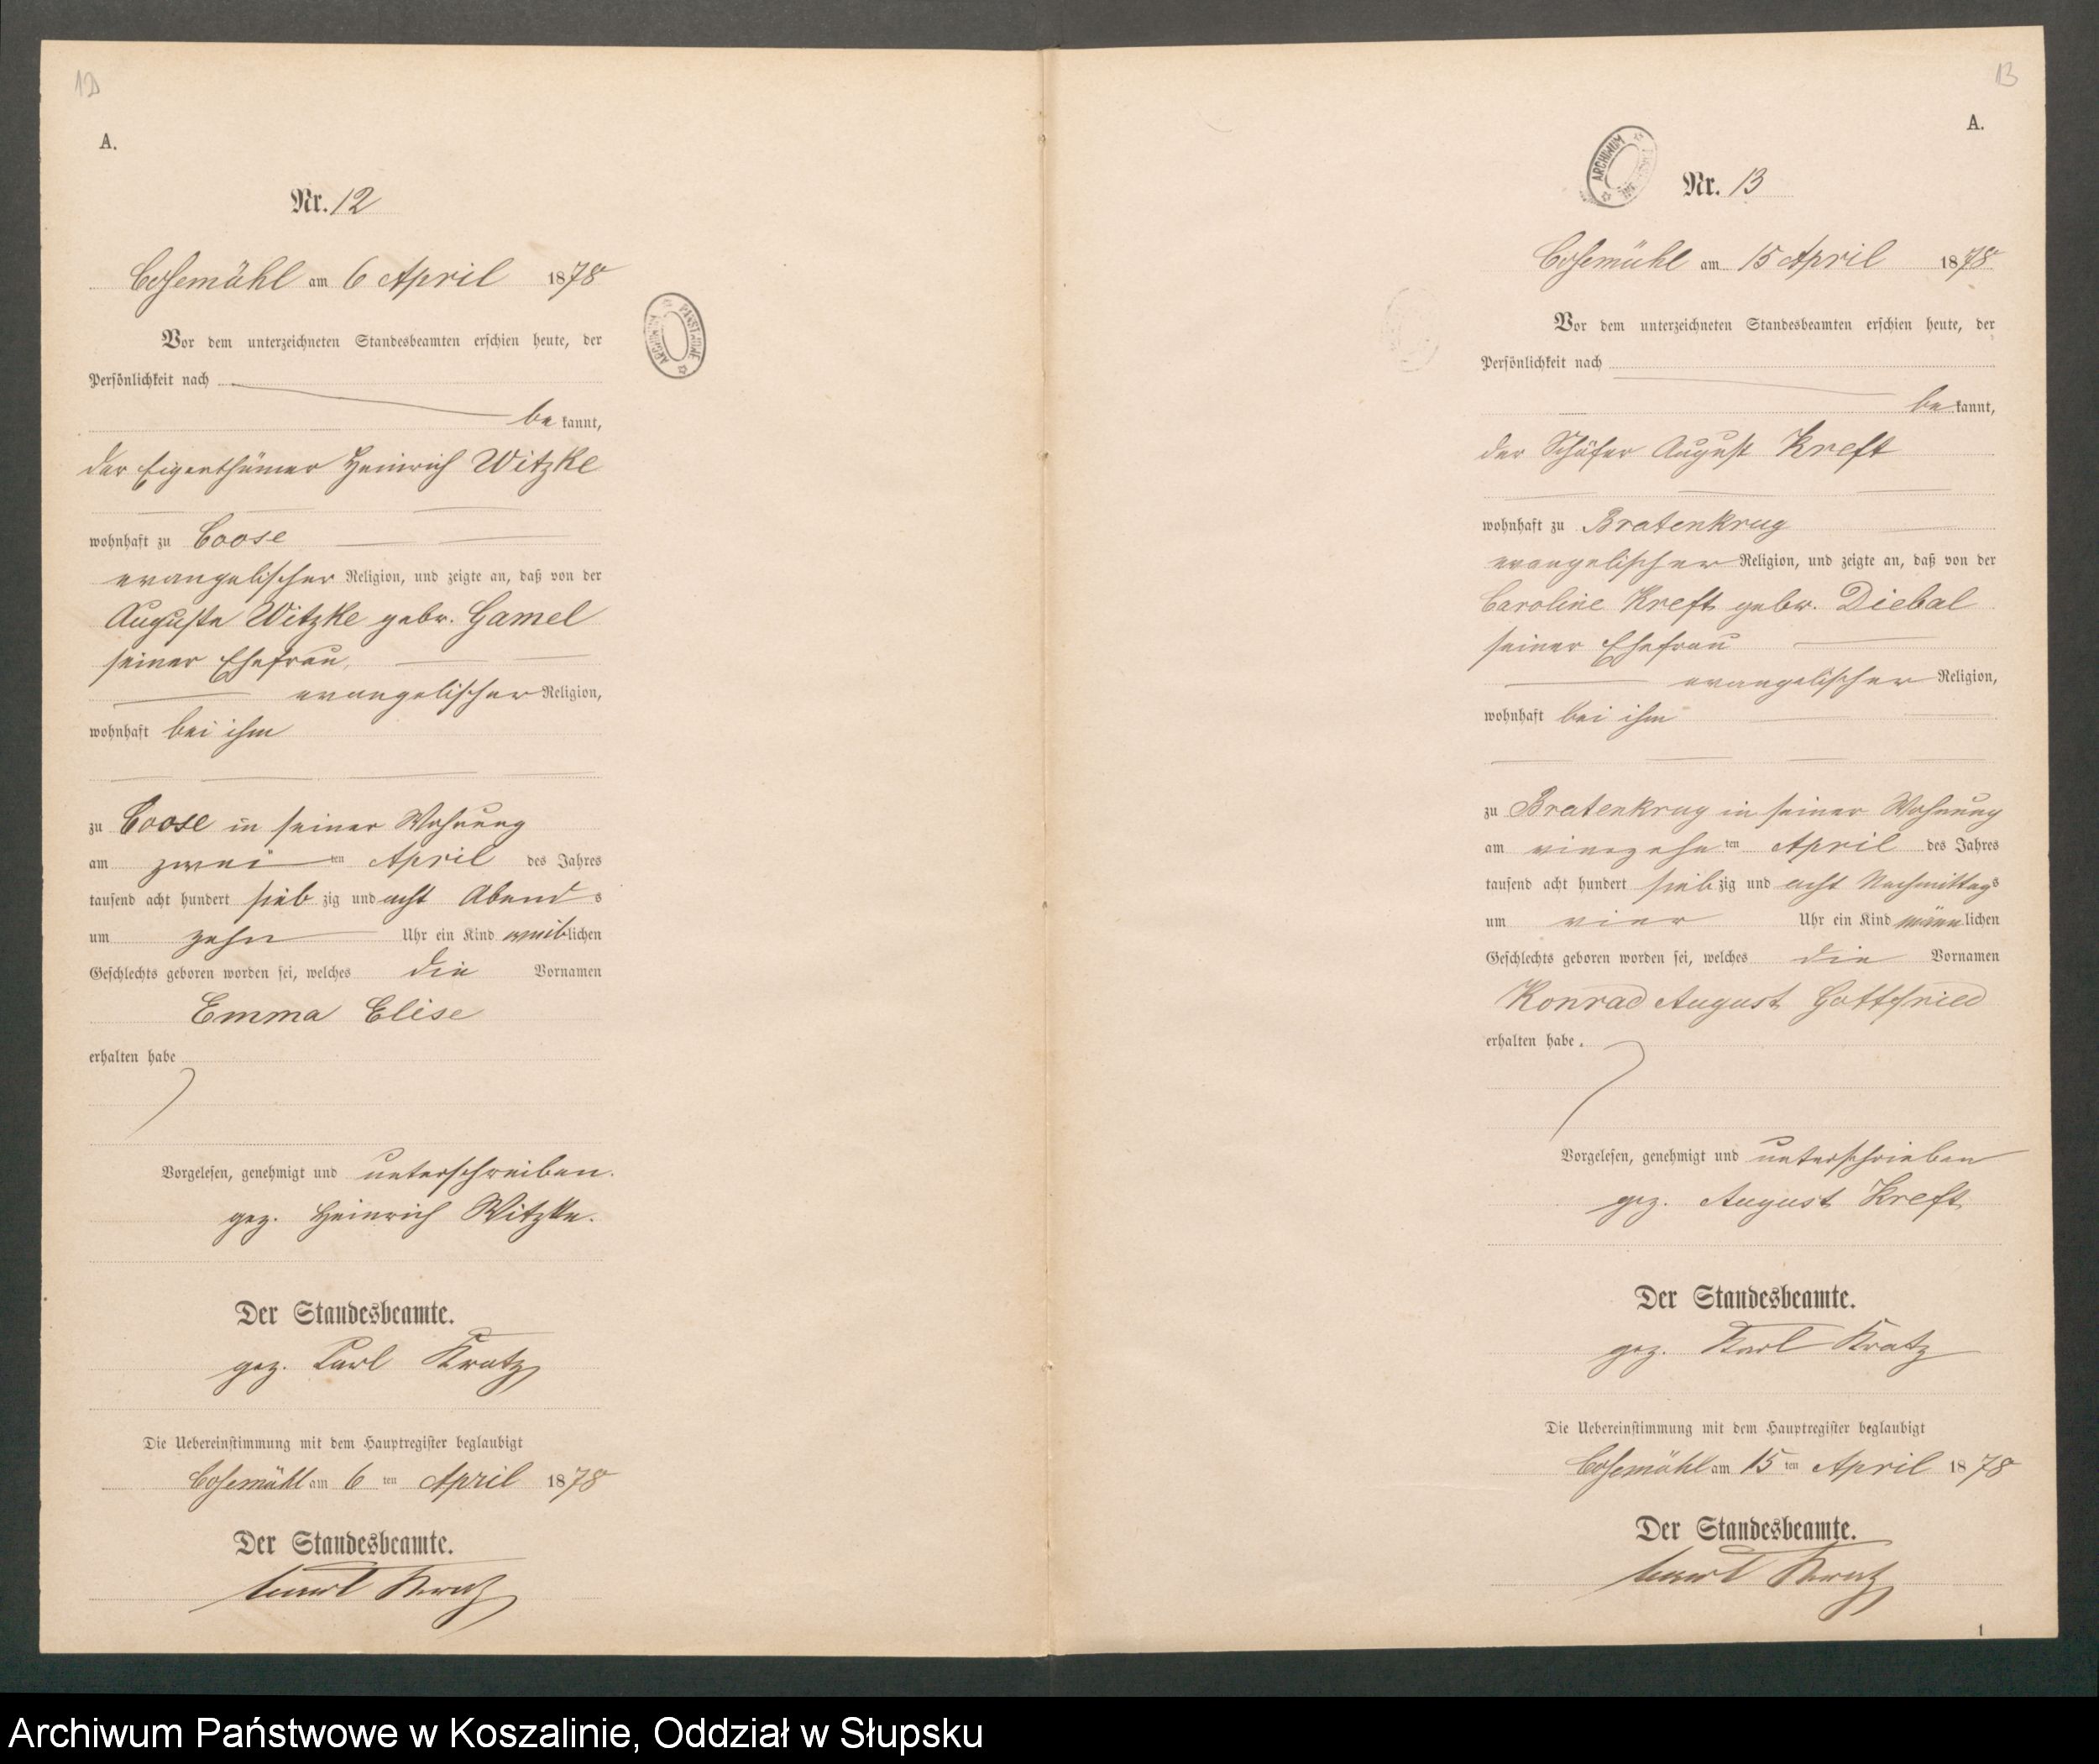 12
A.
Nr. 12
Cosemühl am 6 April 1878
Vor dem unterzeichneten Standesbeamten erschien heute, der
Persönlichkeit nach
be kannt,
der Eigenthümer Heinrich Witzke
wohnhaft zu Coose
evangelischer Religion, und zeigte an, daß von der
Auguste Witzke gebr. Gamel
seiner Ehefrau,
evangelischer Religion,
wohnhaft bei ihm
zu Coose in seiner Wohnung
am zwei ten April des Jahres
tausend acht hundert sieb zig und acht Abend s
um zehn Uhr ein Kind weiblichen
Geschlechts geboren worden sei, welches die Vornamen
Emma Elise
erhalten habe
Vorgelesen, genehmigt und unterschreiben.
gez. Heinrich Witzke.
Der Standesbeamte.
gez. Carl Kratz
Die Uebereinstimmung mit dem Hauptregister beglaubigt
Cosemühl am 6 ten April 1878
Der Standesbeamte.
Carl Kratz
ARCHIWUM PAŃSTWOWE
13
A.
ARCHIWUM
Nr. 13
Cosemühl am 15 April 1878
Vor dem unterzeichneten Standesbeamten erschien heute, der
Persönlichkeit nach
be kannt,
der Schäfer August Kreft
wohnhaft zu Bratenkrug
evangelischer Religion, und zeigte an, daß von der
Caroline Kreft gebr. Diebal
seiner Ehefrau
evangelischer Religion,
wohnhaft bei ihm
zu Bratenkrug in seiner Wohnung
am vierzehn ten April des Jahres
tausend acht hundert sieb zig und acht Nachmittags
um vier Uhr ein Kind männlichen
Geschlechts geboren worden sei, welches die Vornamen
Konrad August Gottfried
erhalten habe.
Vorgelesen, genehmigt und unterschrieben
gez. August Kreft
Der Standesbeamte.
gez. Karl Kratz
Die Uebereinstimmung mit dem Hauptregister beglaubigt
Cosemühl am 15 ten April 1878
Der Standesbeamte.
Carl Kratz
1
Archiwum Państwowe w Koszalinie, Oddział w Słupsku